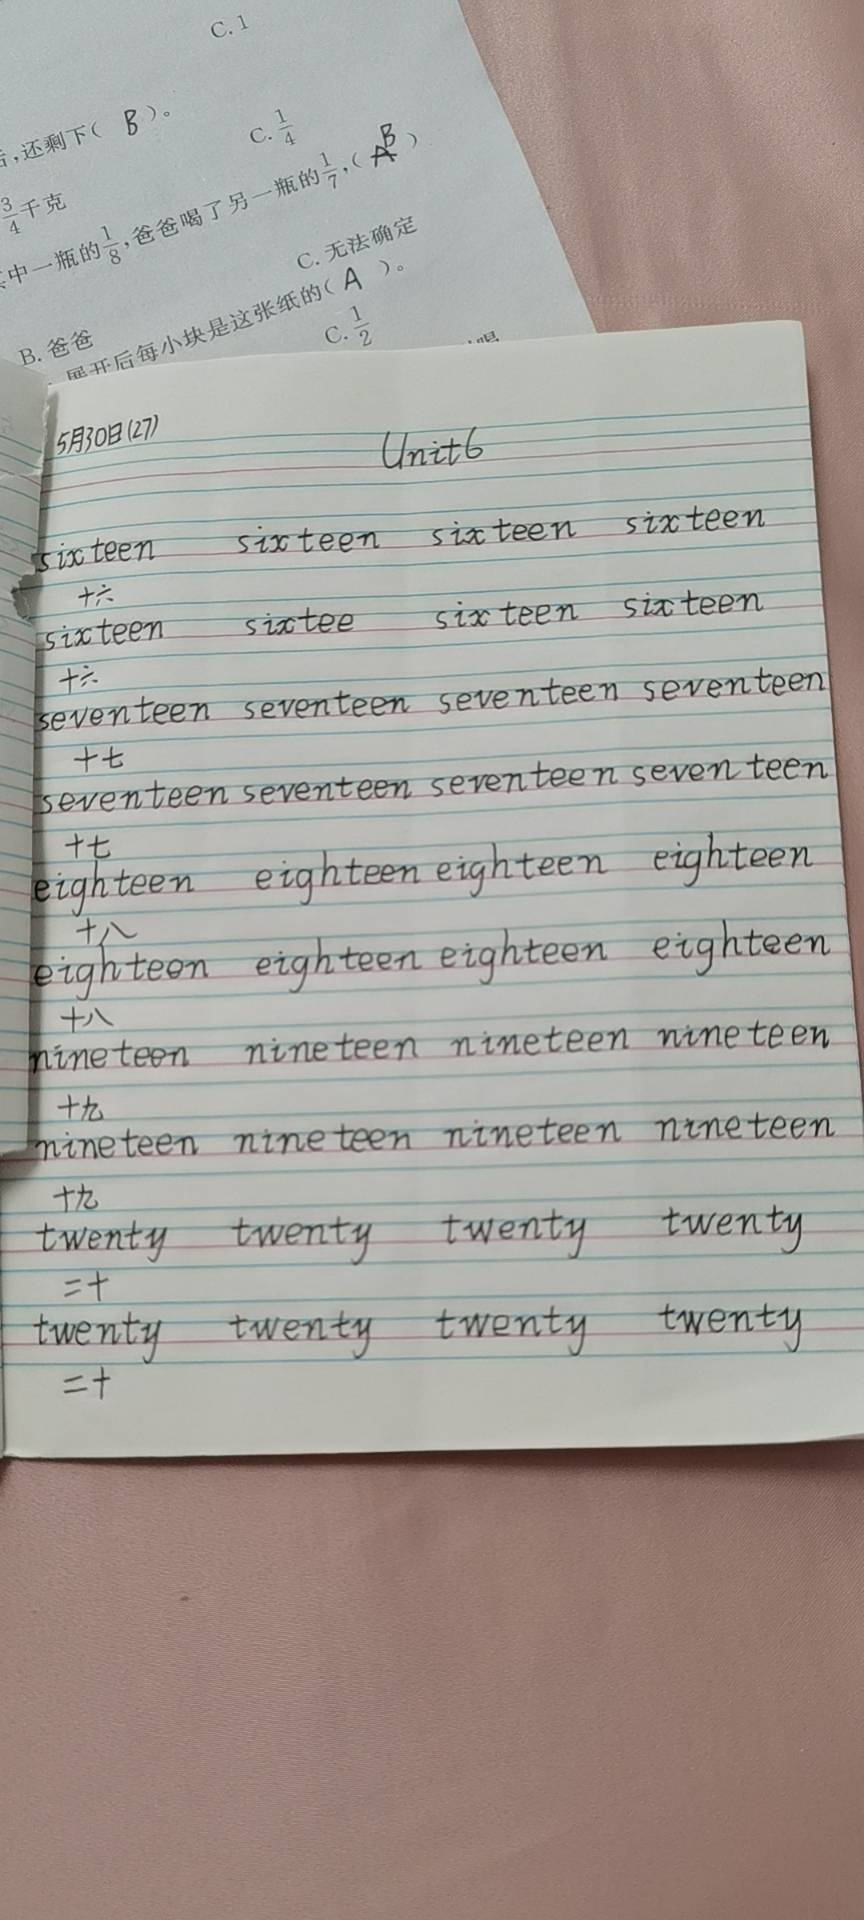 C. 1
,还剩下( B )。
C. 1/4
3/4千克
中一瓶的1/8,爸爸喝了另一瓶的1/7,( A B )
C. 无法确定
B. 爸爸
展开后每小块是这张纸的( A )。
C. 1/2
喝
5月30日(27)
Unit6
sixteen sixteen sixteen sixteen
十六
sixteen sixtee sixteen sixteen
十六
seventeen seventeen seventeen seventeen
十七
seventeen seventeen seventeen seventeen
十七
eighteen eighteen eighteen eighteen
十八
eighteen eighteen eighteen eighteen
十八
nineteen nineteen nineteen nineteen
十九
nineteen nineteen nineteen nineteen
十九
twenty twenty twenty twenty
二十
twenty twenty twenty twenty
二十